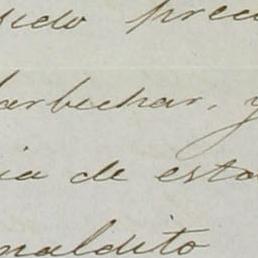 sido prec
barbechar, y
ia de esta
maldito